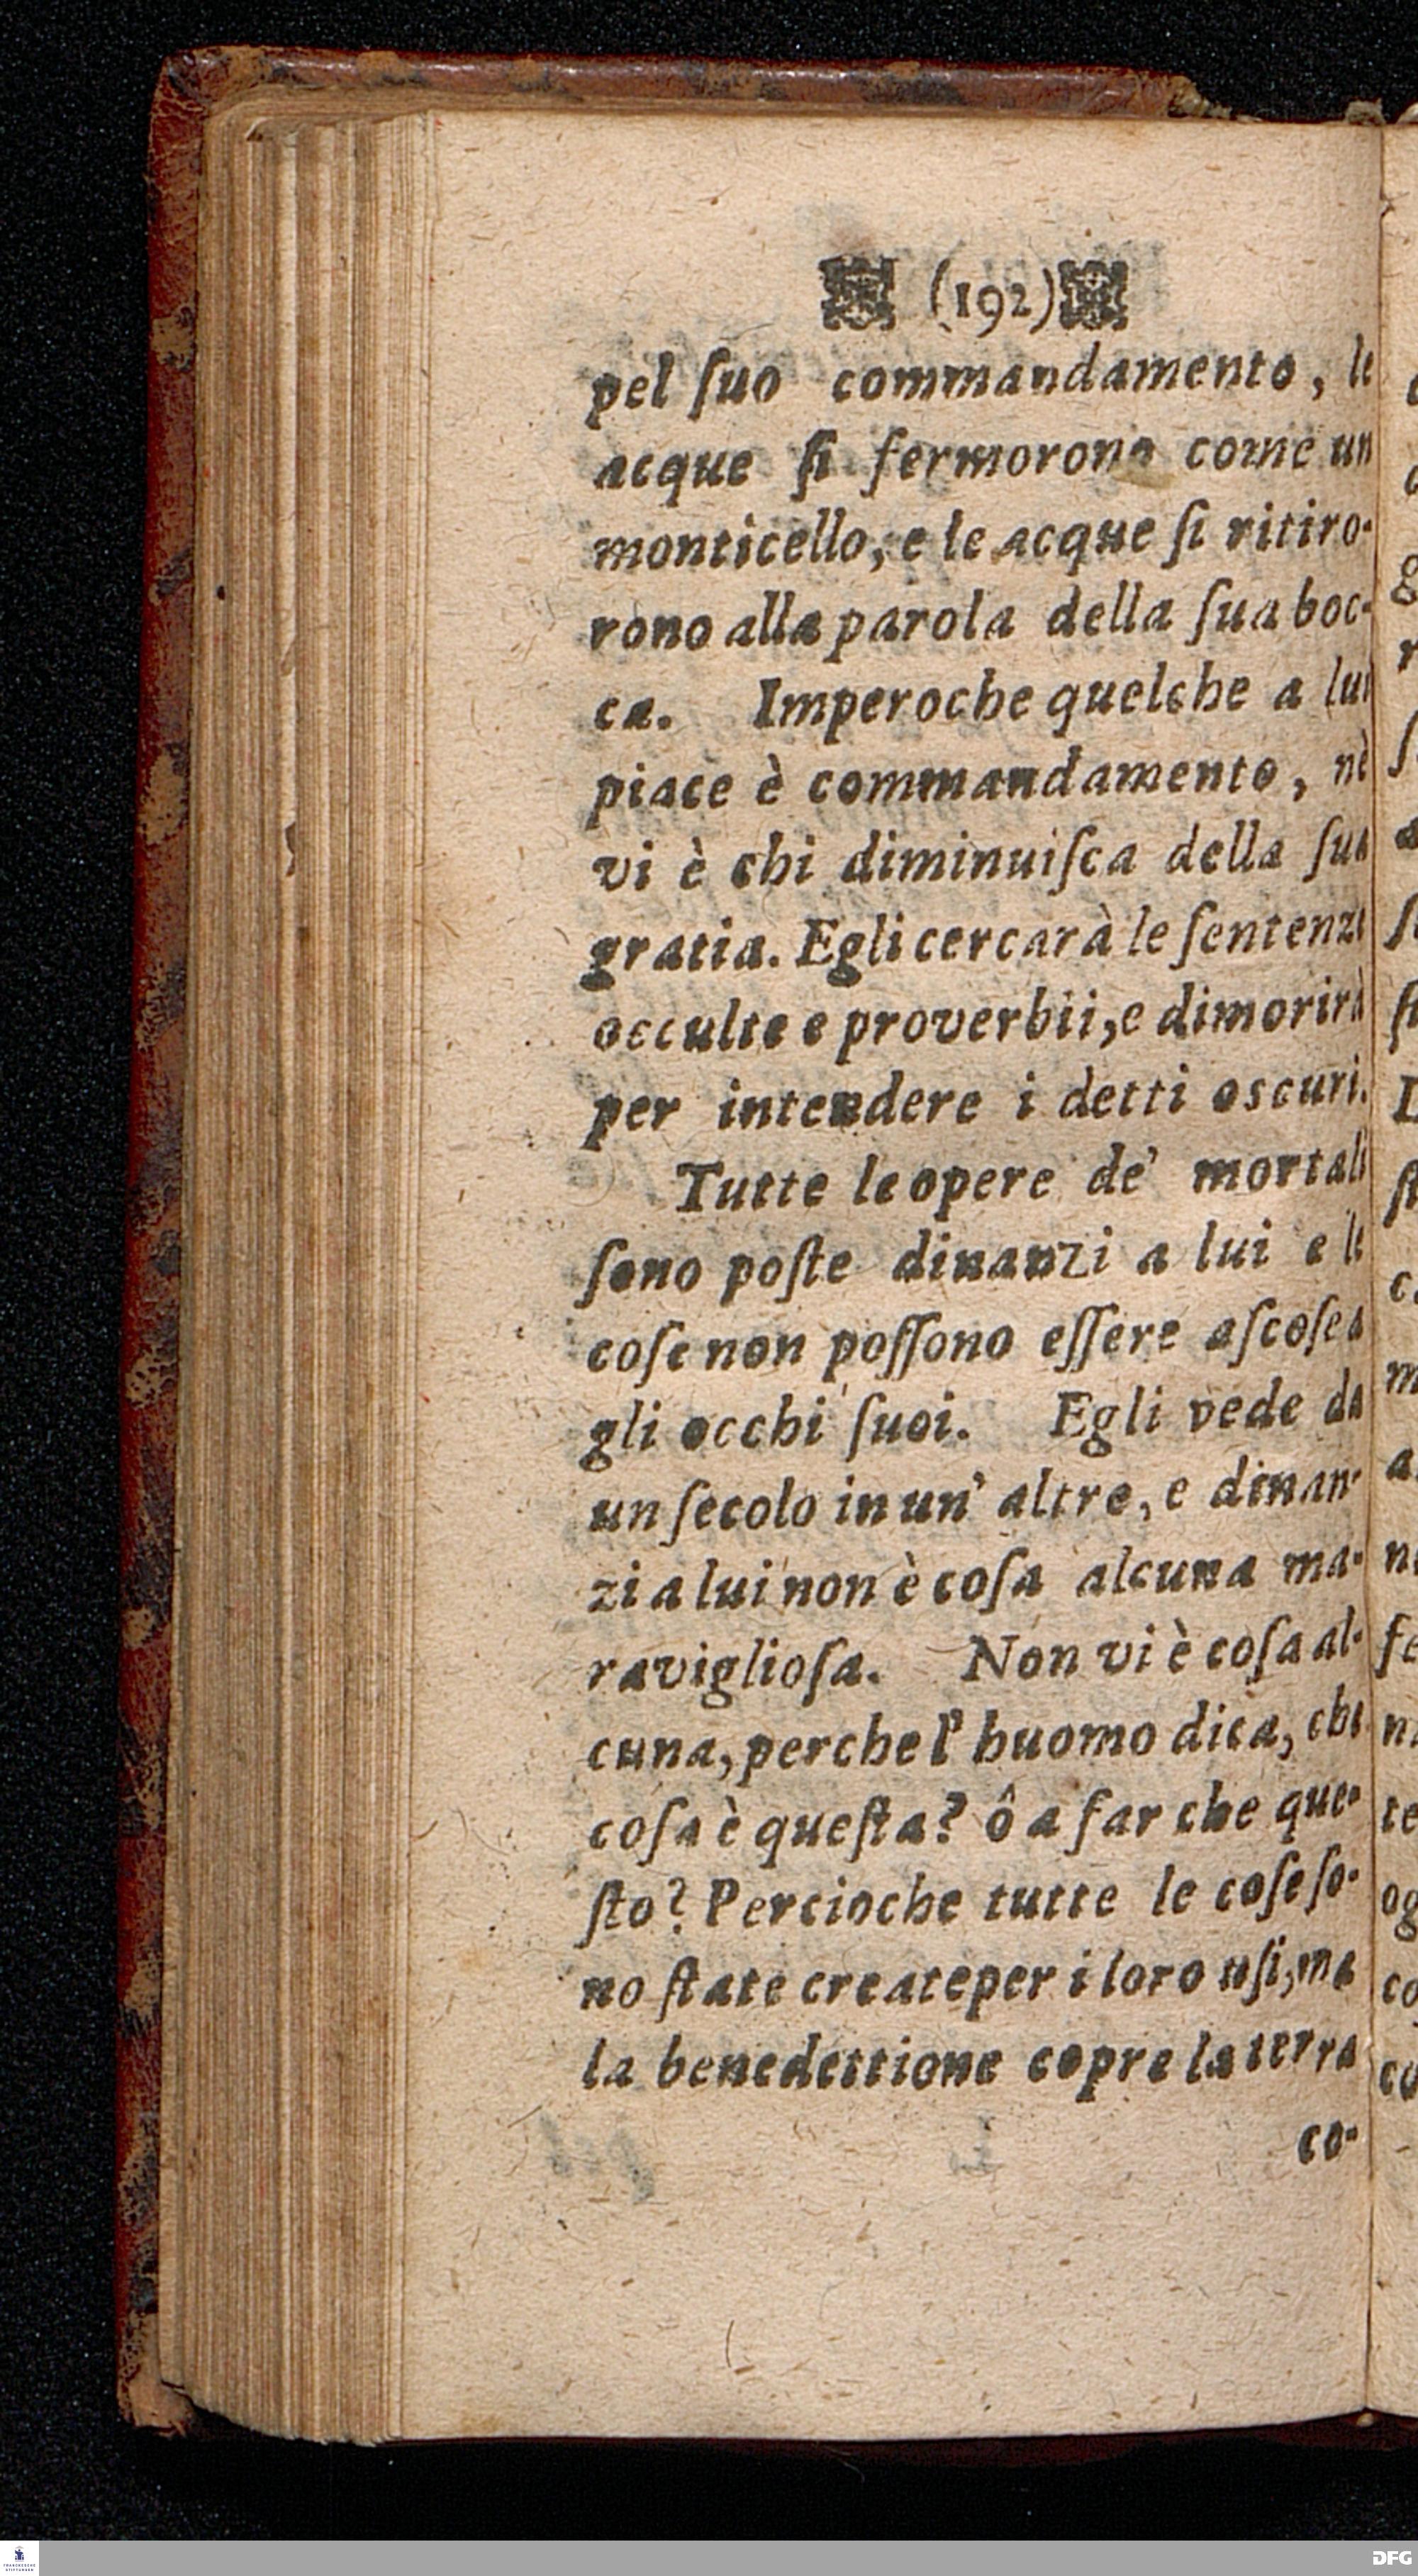 (192)
pel ſuo commandamento, le
acque ſi fermorono come un
monticello, e le acque ſi ritiro-
rono alla parola della ſua boc-
ca. Imperoche quelche a lui
piace è commandamento, nè
vi è chi diminuiſca della ſua
gratia. Egli cercarà le ſentenze
occulte e proverbii, e dimorirà
per intendere i detti oscuri.
Tutte le opere de' mortali
ſono poſte dinanzi a lui e le
coſe non poſſono eſſere aſcoſe a
gli occhi ſuoi. Egli vede da
un ſecolo in un' altre, e dinan-
zi a lui non è coſa alcuna ma-
ravigliosa. Non vi è coſa al-
cuna, perche l' huomo dica, che
coſa è queſta? ô a far che que-
ſto? Percioche tutte le coſe ſo-
no ſtate create per i loro uſi, ma
la benedettione copre la terra
co-
DFG